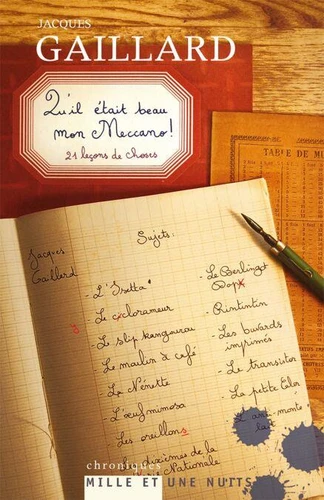 JACQUES
GAILLARD
Qu'il était beau
mon Meccano!
21 leçons de choses
TABLE DE MU
Sujets:
Jacques
Gaillard
- L'Isetta
- Le cyclorameur
y
- Le slip kangourou
- Le moulin à café
- La Nénette
- L'œuf mimosa
- Les oreillons
- Les dixièmes de la
Nationale
- Le Berlingot
Dop
- Rintintin
- Les buvards
imprimés
- Le transistor
- La petite
- L'anti-monte
lait
chroniques
MILLE ET UNE NUITS